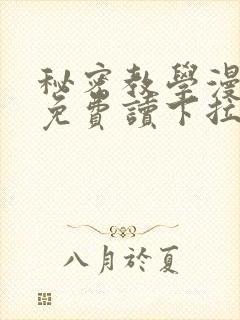 秘密教學漫
免費讀下拉
八月於夏